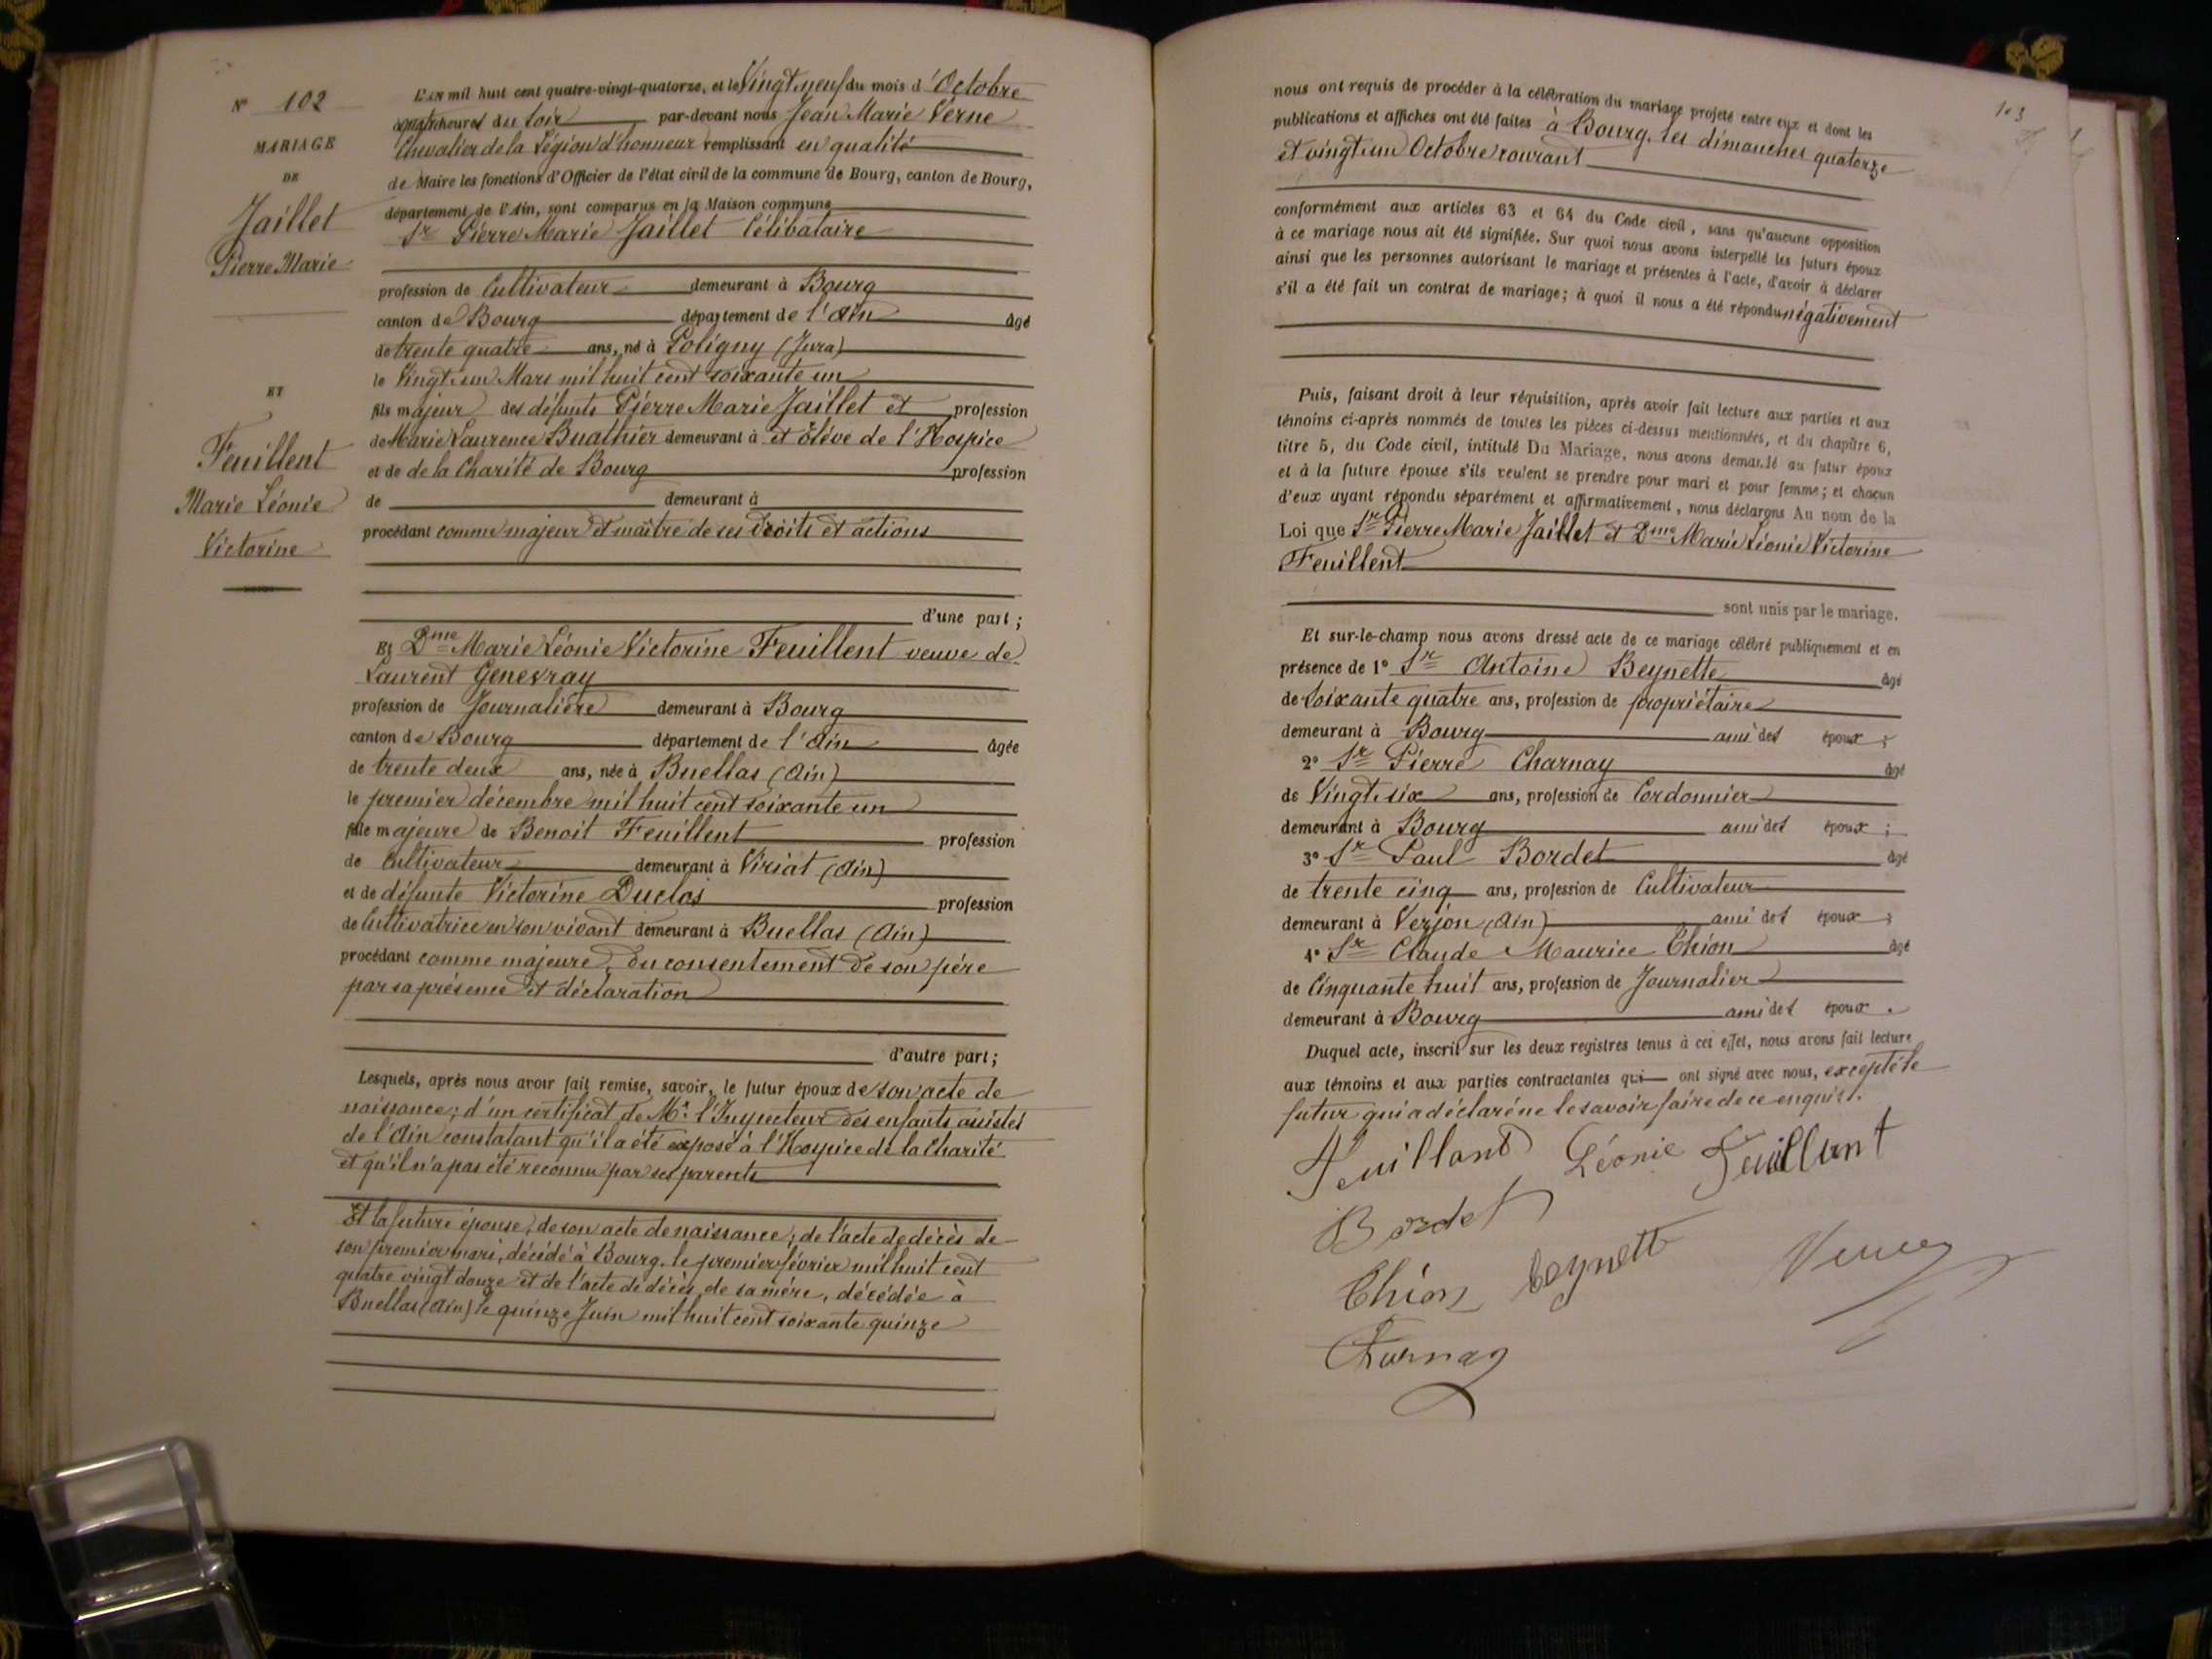 N° 102
MARIAGE
DE
Jaillet
Pierre Marie
ET
Feuillent
Marie Léonie
Victorine
L'AN mil huit cent quatre-vingt-quatorze, et le Vingt neuf du mois d'Octobre
à quatre heures du soir par-devant nous Jean Marie Verne
Chevalier de la Légion d'honneur remplissant en qualité
de Maire les fonctions d'Officier de l'état civil de la commune de Bourg, canton de Bourg,
département de l'Ain, sont comparus en la Maison commune
Sr Pierre Marie Jaillet Célibataire
profession de Cultivateur demeurant à Bourg
canton de Bourg département de l'Ain âgé
de trente quatre ans, né à Poligny (Jura)
le Vingt un Mars mil huit cent soixante un
fils majeur des défunts Pierre Marie Jaillet et profession
de Marie Laurence Buathier demeurant à et élève de l'Hospice
et de de la Charité de Bourg profession
de demeurant à
procédant comme majeur et maître de ses droits et actions
d'une part ;
Et Dme Marie Léonie Victorine Feuillent veuve de
Laurent Genevray
profession de Journalière demeurant à Bourg
canton de Bourg département de l'Ain âgée
de trente deux ans, née à Buellas (Ain)
le premier décembre mil huit cent soixante un
fille majeure de Benoit Feuillent profession
de Cultivateur demeurant à Viriat (Ain)
et de défunte Victorine Duclos profession
de Cultivatrice en son vivant demeurant à Buellas (Ain)
procédant comme majeure, du consentement de son père
par sa présence et déclaration
d'autre part ;
Lesquels, après nous avoir fait remise, savoir, le futur époux de son acte de
naissance ; d'un certificat de Mr l'Inspecteur des enfants assistés
de l'Ain constatant qu'il a été exposé à l'Hospice de la Charité
et qu'il n'a pas été reconnu par ses parents
Et la future épouse, de son acte de naissance ; de l'acte de décès de
son premier mari, décédé à Bourg, le premier février mil huit cent
quatre vingt douze et de l'acte de décès de sa mère, décédée à
Buellas (Ain) le quinze Juin mil huit cent soixante quinze
103
nous ont requis de procéder à la célébration du mariage projeté entre eux et dont les
publications et affiches ont été faites à Bourg, les dimanches quatorze
et vingt un Octobre courant
conformément aux articles 63 et 64 du Code civil, sans qu'aucune opposition
à ce mariage nous ait été signifiée. Sur quoi nous avons interpellé les futurs époux
ainsi que les personnes autorisant le mariage et présentes à l'acte, d'avoir à déclarer
s'il a été fait un contrat de mariage ; à quoi il nous a été répondu négativement
Puis, faisant droit à leur réquisition, après avoir fait lecture aux parties et aux
témoins ci-après nommés de toutes les pièces ci-dessus mentionnées, et du chapitre 6,
titre 5, du Code civil, intitulé Du Mariage, nous avons demandé au futur époux
et à la future épouse s'ils veulent se prendre pour mari et pour femme ; et chacun
d'eux ayant répondu séparément et affirmativement, nous déclarons Au nom de la
Loi que Sr Pierre Marie Jaillet et Dme Marie Léonie Victorine
Feuillent
sont unis par le mariage.
Et sur-le-champ nous avons dressé acte de ce mariage célébré publiquement et en
présence de 1° Sr Antoine Beynette âgé
de soixante quatre ans, profession de propriétaire
demeurant à Bourg ami des époux ;
2° Sr Pierre Charnay âgé
de Vingt six ans, profession de Cordonnier
demeurant à Bourg ami des époux ;
3° Sr Paul Bordet âgé
de trente cinq ans, profession de Cultivateur
demeurant à Verjon (Ain) ami des époux ;
4° Sr Claude Maurice Chion âgé
de Cinquante huit ans, profession de Journalier
demeurant à Bourg ami des époux .
Duquel acte, inscrit sur les deux registres tenus à cet effet, nous avons fait lecture
aux témoins et aux parties contractantes qui ont signé avec nous, excepté le
futur qui a déclaré ne le savoir faire de ce enquis.
Feuillant Léonie Feuillent
Bordet
Chion Beynette Verne
Charnay